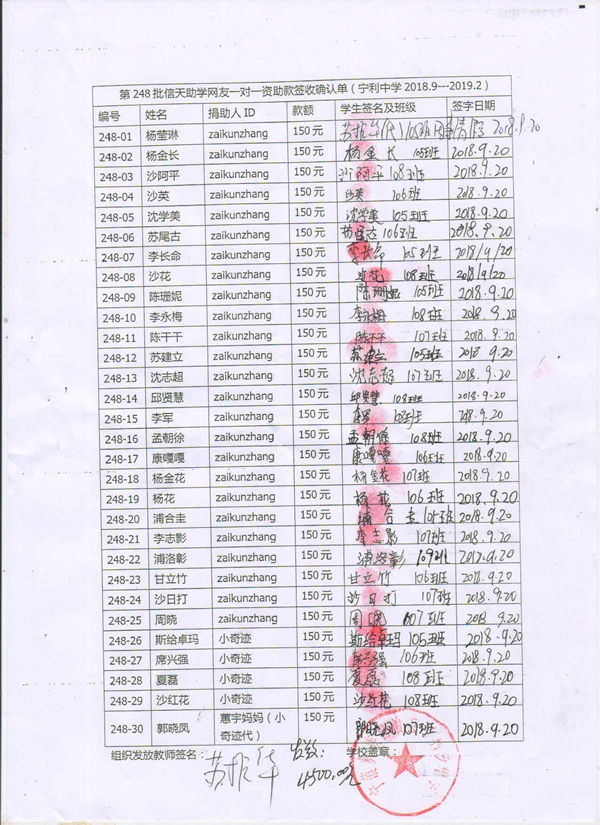 第 248 批信天助学网友一对一资助款签收确认单（宁利中学 2018.9---2019.2）
编号 姓名 捐助人 ID 款额 学生签名及班级 签字日期
248-01 杨莹琳 zaikunzhang 150 元 苏振华(代) 105班 2018.9.20
248-02 杨金长 zaikunzhang 150 元 杨金长 105班 2018.9.20
248-03 沙阿平 zaikunzhang 150 元 沙阿平 108班 2018.9.20
248-04 沙英 zaikunzhang 150 元 沙英 106班 2018.9.20
248-05 沈学美 zaikunzhang 150 元 沈学美 105班 2018.9.20
248-06 苏尾古 zaikunzhang 150 元 106班 2018.9.20
248-07 李长命 zaikunzhang 150 元 李长命 105班 2018/9/20
248-08 沙花 zaikunzhang 150 元 沙花 108班 2018/9/20
248-09 陈珊妮 zaikunzhang 150 元 陈珊妮 105班 2018.9.20
248-10 李永梅 zaikunzhang 150 元 李永梅 108班 2018.9.20
248-11 陈干干 zaikunzhang 150 元 陈干干 107班 2018.9.20
248-12 苏建立 zaikunzhang 150 元 苏建立 105班 2018 9.20
248-13 沈志超 zaikunzhang 150 元 沈志超 107班 2018.9.20
248-14 邱贤慧 zaikunzhang 150 元 邱贤慧 108班 2018.9.20
248-15 李军 zaikunzhang 150 元 李军 108班 2018.9.20
248-16 孟朝徐 zaikunzhang 150 元 孟朝徐 108班 2018.9.20
248-17 康嘎嘎 zaikunzhang 150 元 康嘎嘎 106班 2018.9.20
248-18 杨金花 zaikunzhang 150 元 杨金花 107班 2018.9.20
248-19 杨花 zaikunzhang 150 元 杨花 106班 2018.9.20
248-20 浦合圭 zaikunzhang 150 元 浦合圭 107班 2018.9.20
248-21 李志影 zaikunzhang 150 元 李志影 107班 2018.9.20
248-22 浦洛彰 zaikunzhang 150 元 浦洛彰 109班 2017.9.20
248-23 甘立竹 zaikunzhang 150 元 甘立竹 106班 2018.9.20
248-24 沙日打 zaikunzhang 150 元 沙日打 107班 2018.9.20
248-25 周晓 zaikunzhang 150 元 周晓 107班 2018 9.20
248-26 斯给卓玛 小奇迹 150 元 斯给卓玛 105班 2018.9.20
248-27 席兴强 小奇迹 150 元 席兴强 106班 2018.9.20
248-28 夏磊 小奇迹 150 元 夏磊 108班 2018.9.20
248-29 沙红花 小奇迹 150 元 沙红花 108班 2018.9.20
248-30 郭晓凤 蕙宇妈妈（小奇迹代） 150 元 郭晓凤 107班 2018.9.20
组织发放教师签名： 苏振华 发放: 4500.00元 学校盖章：